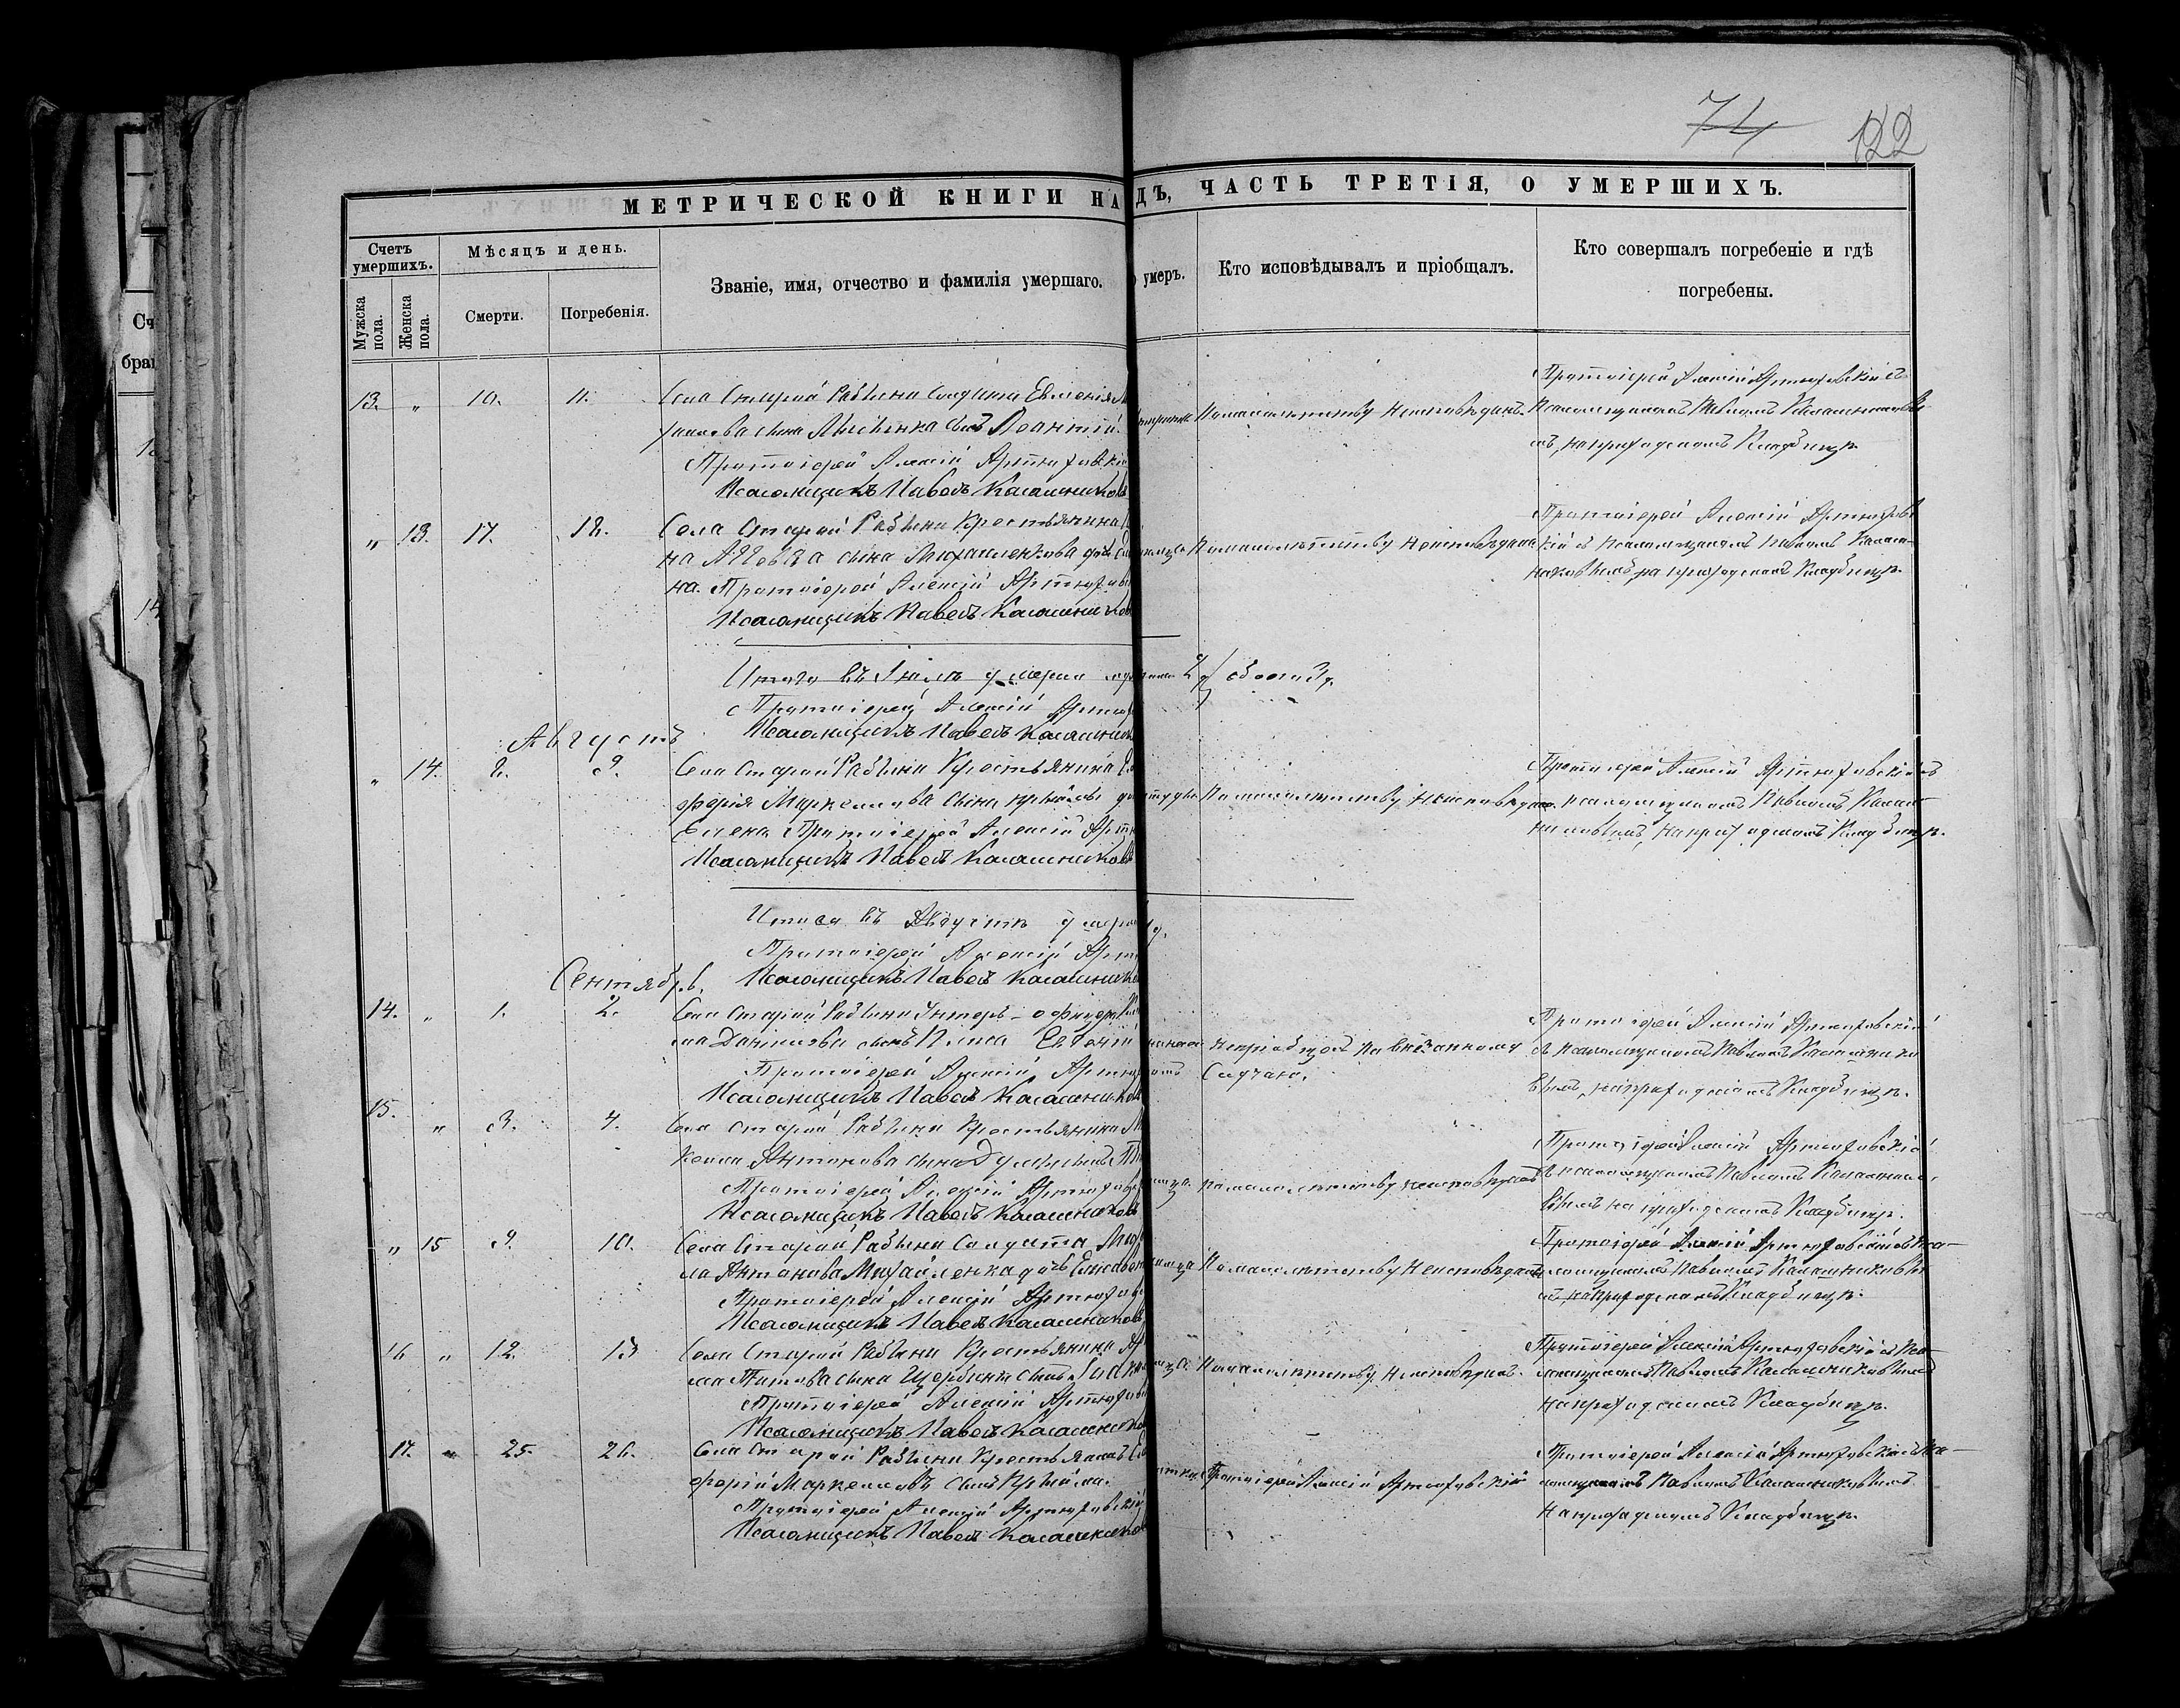 74 122
МЕТРИЧЕСКОЙ КНИГИ НА
ДЪ, ЧАСТЬ ТРЕТІЯ, О УМЕРШИХЪ.
Счетъ умершихъ.
Мужска пола.
Женска пола.
Мѣсяцъ и день.
Смерти.
Погребенія.
Званіе, имя, отчество и фамилія умершаго.
умеръ.
Кто исповѣдывалъ и пріобщалъ.
Кто совершалъ погребеніе и гдѣ
погребены.
Сч
бра
13. " 10. 11. Села Старой Рабыни Солдата
сына сынъ Леонтій.
Протоіерей Алексій Артюховскій
Псаломщикъ Павелъ Калашников
По малолѣтству неисповѣданъ.
Протоіерей Алексій Артюховскій съ
псаломщикомъ Павломъ
на приходскомъ кладбищѣ.
" 13. 17. 18. Села Старой Рабыни Крестьянина
сына Михайленкова
на. Протоіерей Алексій Артюхов
Псаломщикъ Павелъ Калашников
По малолѣтству неисповѣдана
Протоіерей Алексій Артюховс
кій съ псаломщикомъ Павломъ Калаш-
никовымъ, на приходскомъ кладбищѣ.
Итого въ Іюлѣ умерло 2 обоего 3
Протоіерей Алексій Артюх
Псаломщикъ Павелъ Калашник
Августъ
" 14. 8. 9. Села Старой Рабыни Крестьянина
ферія Маркеллова сына
Елена. Протоіерей Алексій Артю
Псаломщикъ Павелъ Калашников
По малолѣтству неисповѣдана.
Протоіерей Алексій Артюховскій съ
псаломщикомъ Павломъ Калаш-
никовымъ, на приходскомъ кладбищѣ.
Итого въ Августѣ умерло
Протоіерей Алексій Артю
Псаломщикъ Павелъ Калашнико
Сентябрь.
14. " 1. 2. Села Старой Рабыни Унтеръ-офицера
ма Данилова сына Евгеній
Протоіерей Алексій Артюх
Псаломщикъ Павелъ Калашников
Непріобщенъ по внезапному
случаю.
Протоіерей Алексій Артюховскій
съ псаломщикомъ Павломъ Калашнико
вымъ, на приходскомъ кладбищѣ.
15. " 3. 4. Села Старой Рабыни Крестьянина
Антонова сына
Протоіерей Алексій Артюхов
Псаломщикъ Павелъ Калашников
по малолѣтству неисповѣданъ
Протоіерей Алексій Артюховскій
съ псаломщикомъ Павломъ Калашнико
вымъ на приходскомъ кладбищѣ.
" 15 9. 10. Села Старой Рабыни Солдата
ла Антонова Михайленка дочь Елисаве
Протоіерей Алексій Артюхов
Псаломщикъ Павелъ Калашников
По малолѣтству неисповѣдана
Протоіерей Алексій Артюховскій съ пса-
ломщикомъ Павломъ Калашниковы
мъ, на приходскомъ кладбищѣ.
16 " 12. 13 Села Старой Рабыни Крестьянина
ма Титова сына Щербины сынъ
Протоіерей Алексій Артюхов
Псаломщикъ Павелъ Калашников
По малолѣтству неисповѣданъ.
Протоіерей Алексій Артюховскій съ пса-
ломщикомъ Павломъ Калашниковымъ
на приходскомъ кладбищѣ.
17. " 25. 26. Села Старой Рабыни Крестьянинъ
ферій Маркелловъ сынъ
Протоіерей Алексій Артюховскій
Псаломщикъ Павелъ Калашников
Протоіерей Алексій Артюховскій
Протоіерей Алексій Артюховскій съ пса-
ломщикомъ Павломъ Калашниковымъ
на приходскомъ кладбищѣ.